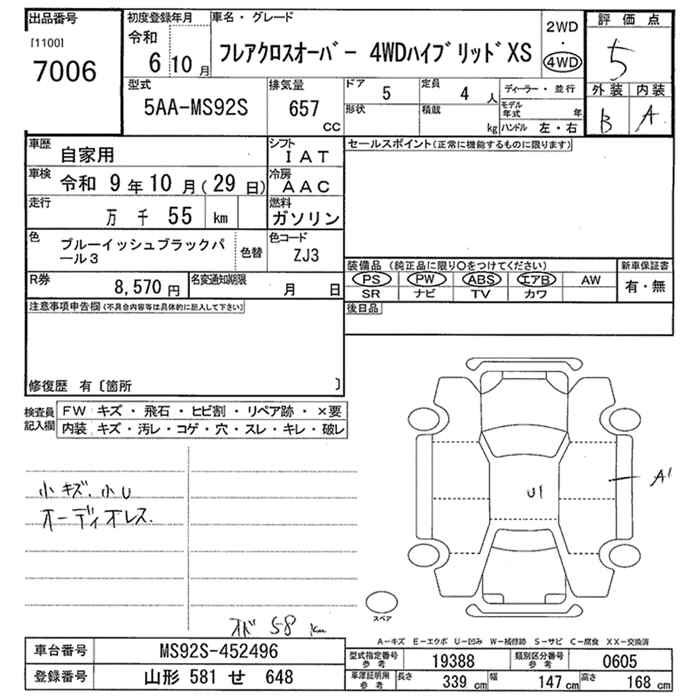 出品番号
[1100]
7006
初度登録年月
令和
6 10 月
車名・グレード
フレアクロスオーバー 4WDハイブリッドXS
2WD
・
4WD
評価点
5
外装 内装
B A
型式
5AA-MS92S
排気量
657
CC
ドア
5
定員
4 人
形状
積載
kg
ディーラー・並行
モデル年式 年
ハンドル 左・右
車歴
自家用
シフト
IAT
車検
令和 9年 10月(29日)
冷房
AAC
走行
万 千 55 km
燃料
ガソリン
色
ブルーイッシュブラックパ
ール3
色替
色コード
ZJ3
R券
8,570円
名変通知期限
月 日
セールスポイント(正常に機能するものに限ります)
装備品(純正品に限り○をつけてください)
新車保証書
PS PW ABS エアB AW
有・無
SR ナビ TV カワ
後日品
注意事項申告欄(不具合内容等は具体的に記入して下さい)
修復歴 有〔箇所 〕
検査員
記入欄
FW キズ・飛石・ヒビ割・リペア跡・×要
内装 キズ・汚レ・コゲ・穴・スレ・キレ・破レ
小キズ.小U
オーディオレス.
オド 58 km
U1
A1
スペア
A-キズ E-エクボ U-凹み W-補修跡 S-サビ C-腐食 XX-交換済
車台番号
MS92S-452496
登録番号
山形 581 せ 648
型式指定番号
参考
19388
類別区分番号
参考
0605
車庫証明用
参考
長さ
339 cm
幅
147 cm
高さ
168 cm